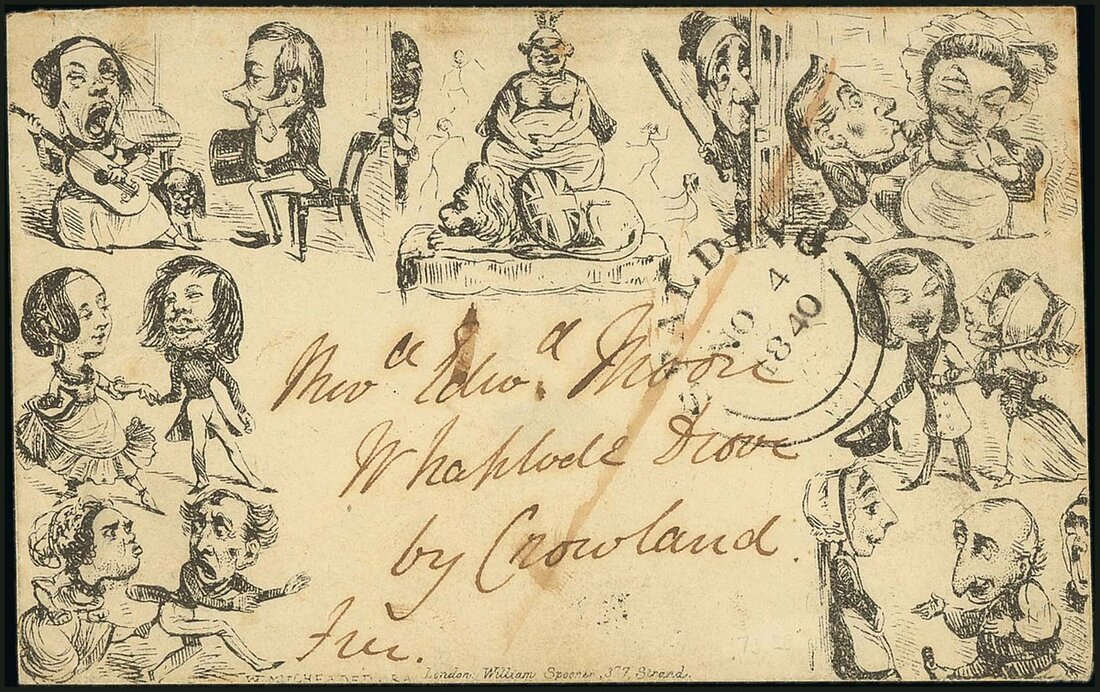 SPALDING
NO 4
1840
Mr Edwd. Moore
Whaplode Drove
by Crowland.
Free.
W. MULHEADED, R.A.
London: William Spooner, 377, Strand.